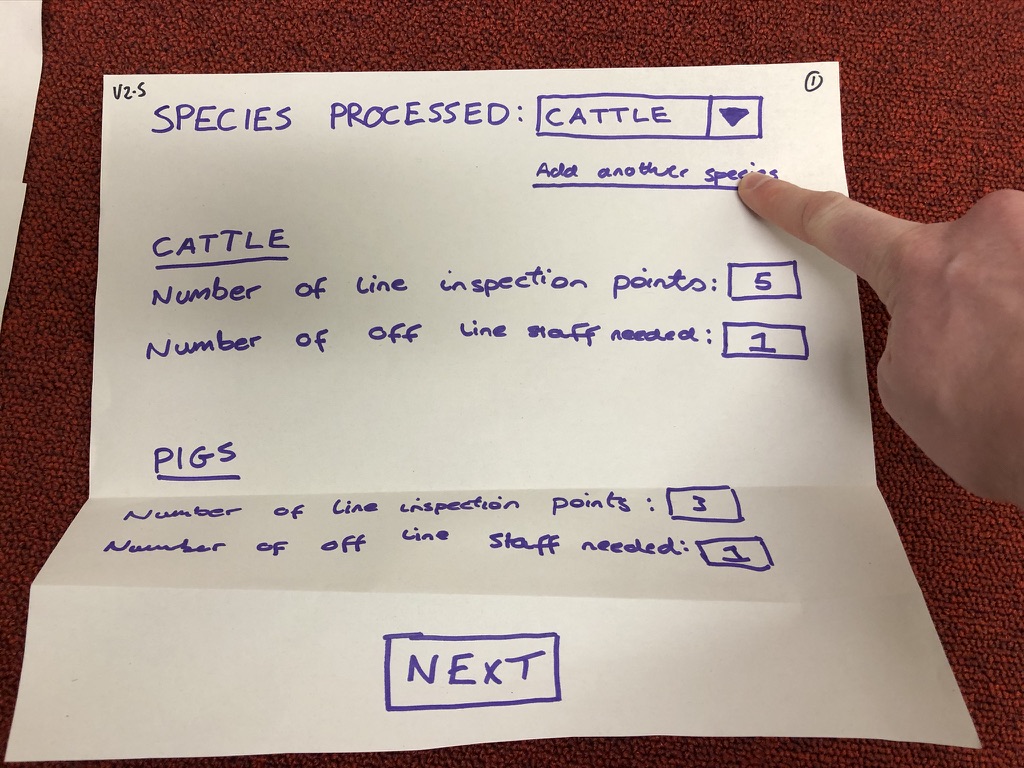 V2.S
①
SPECIES PROCESSED: CATTLE ▼
Add another species
CATTLE
Number of line inspection points: 5
Number of off line staff needed: 1
PIGS
Number of line inspection points: 3
Number of off line staff needed: 1
NEXT